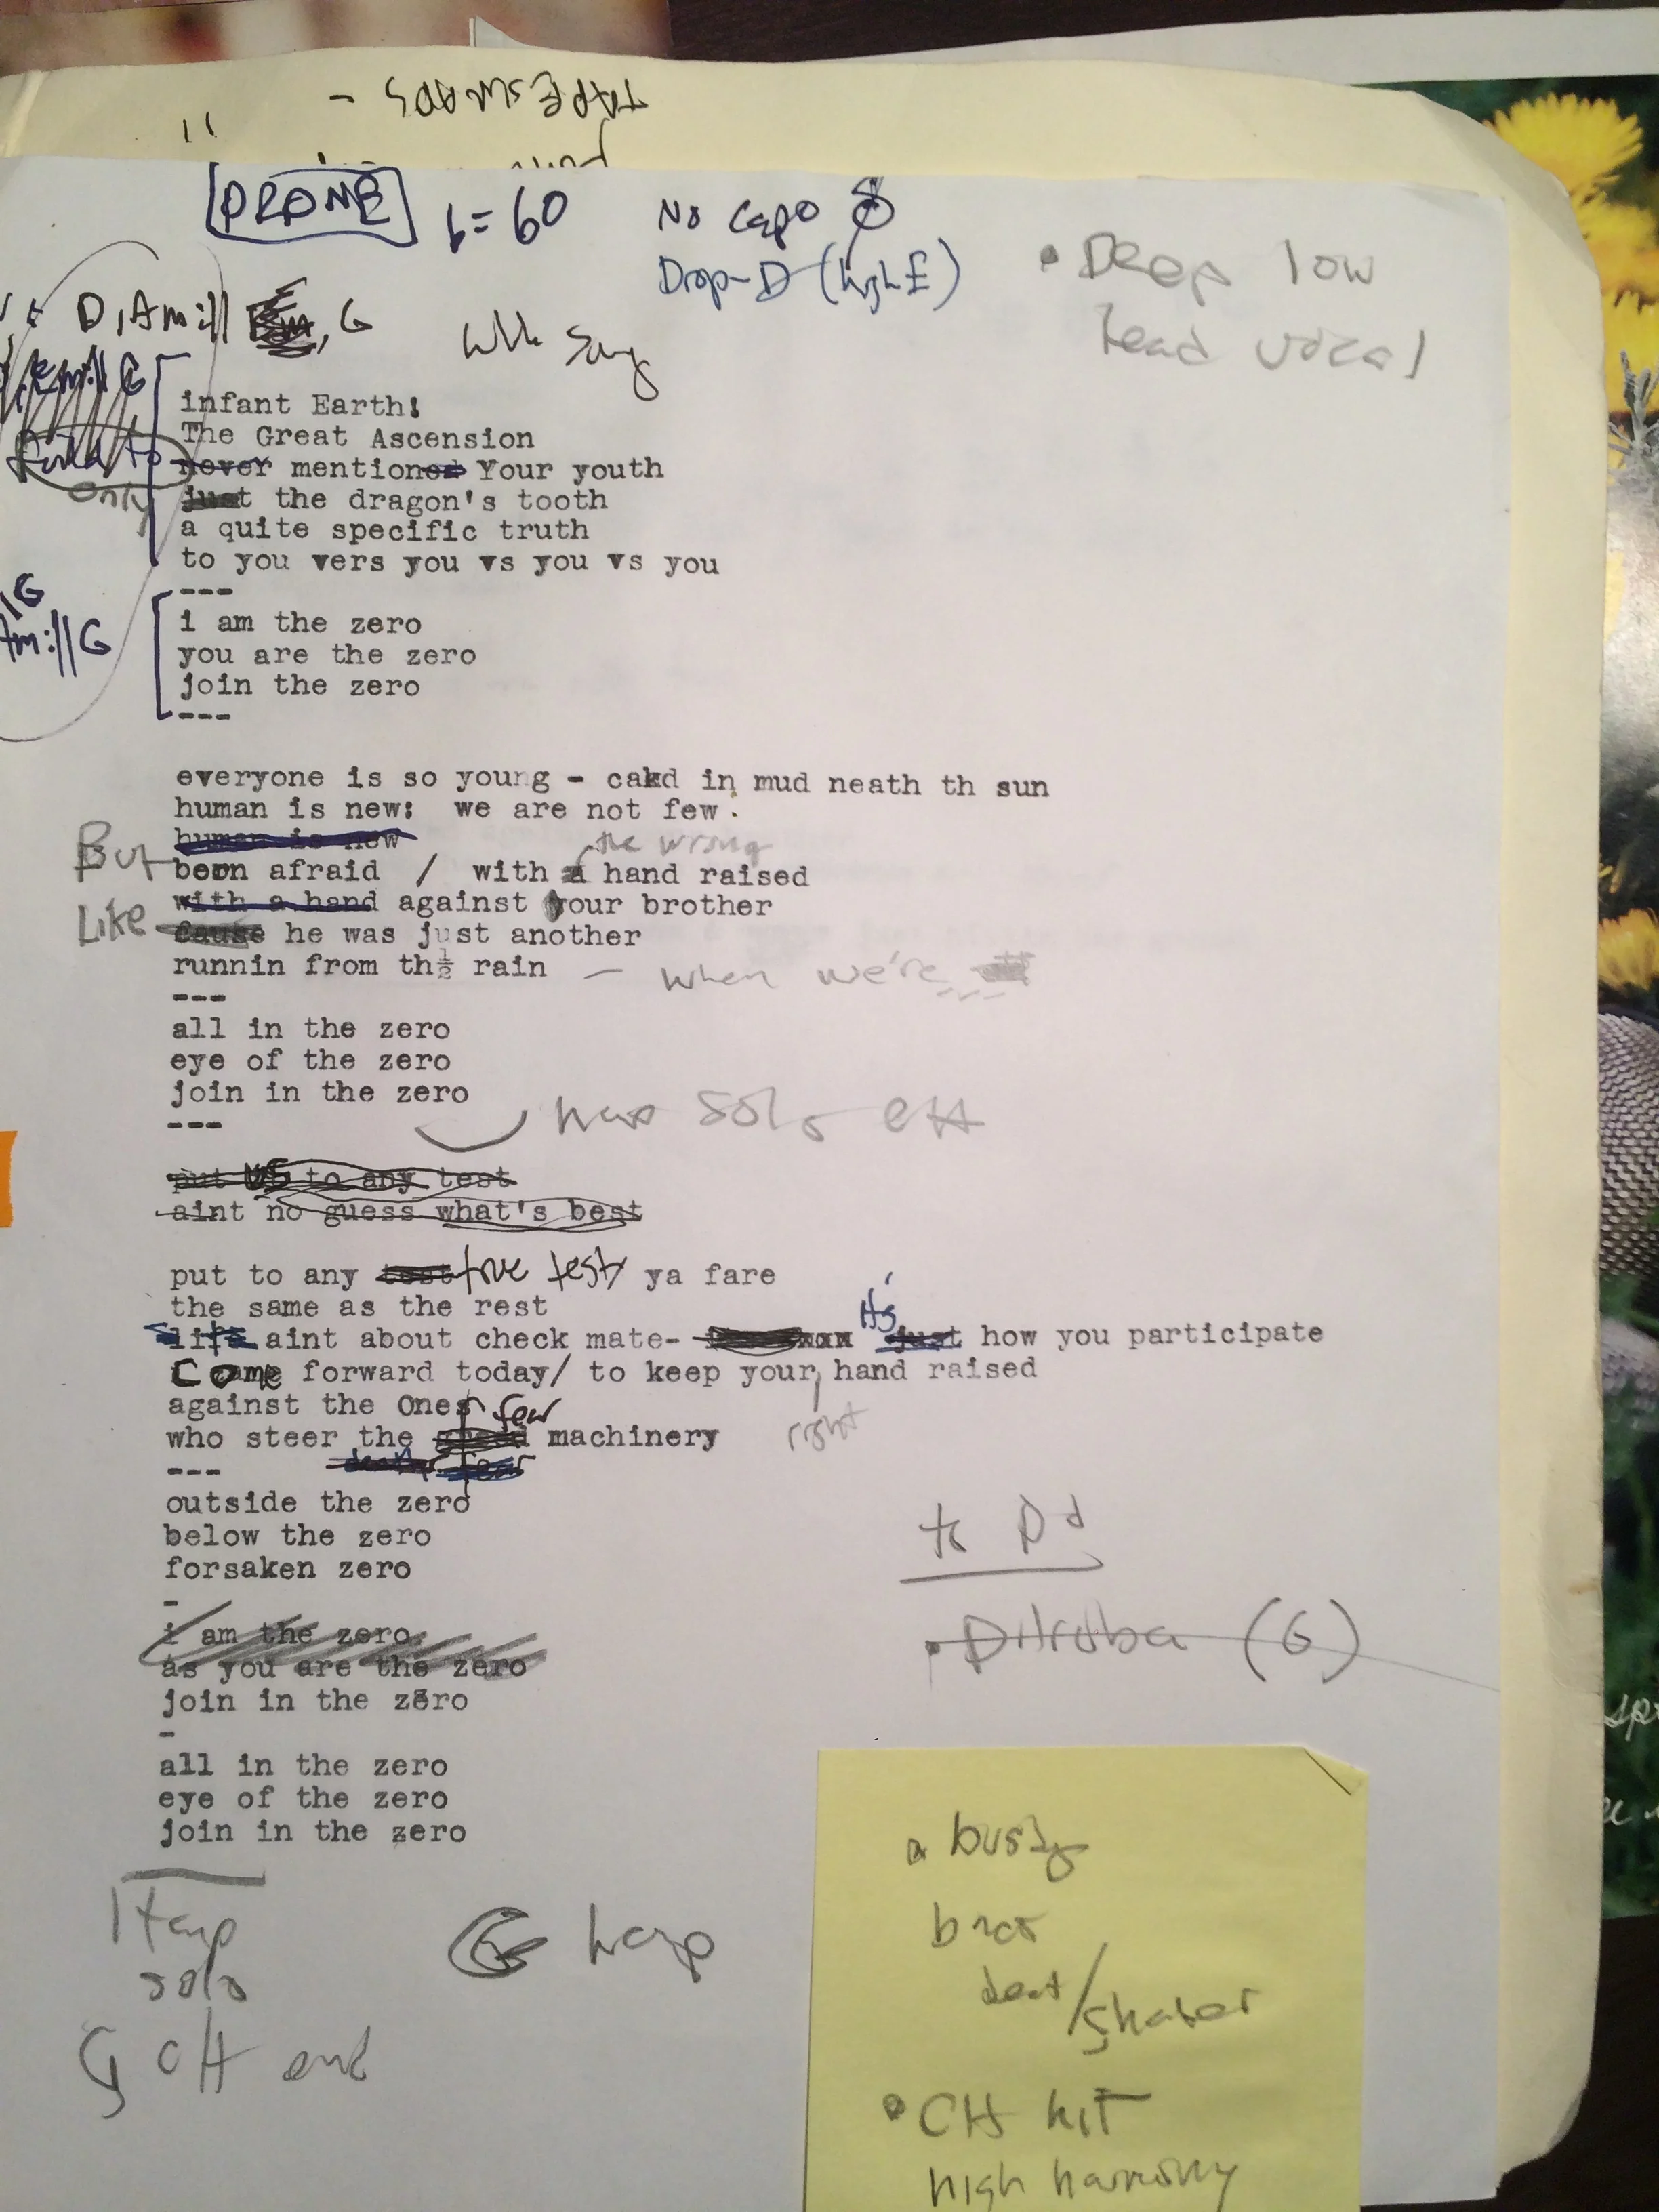 TAPE SWAPS -
DRONE
b= 60
No Capo
Drop-D (high E)
• Deep low
lead vocal
D, Am :|| Em, G
Em :|| G
only
infant Earth!
The Great Ascension
never mentioned Your youth
just the dragon's tooth
a quite specific truth
to you vers you vs you vs you
---
G
Am :|| G
i am the zero
you are the zero
join the zero
---
everyone is so young - cakd in mud neath th sun
human is new: we are not few.
human is new
the wrong
But been afraid / with a hand raised
with a hand against your brother
Like cause he was just another
runnin from th½ rain — when we're
---
all in the zero
eye of the zero
join in the zero
---
solo
put us to any test
aint no guess what's best
put to any test true test/ ya fare
the same as the rest
it's
life aint about check mate- just how you participate
Come forward today/ to keep your hand raised
right
against the Ones
few
who steer the machinery
fear
---
outside the zero
below the zero
forsaken zero
-
to Dd
• Dilruba (G)
i am the zero
as you are the zero
join in the zero
-
all in the zero
eye of the zero
join in the zero
Harp
solo
G CH end
G harp
busy
beat/shaker
• CH hit
high harmony